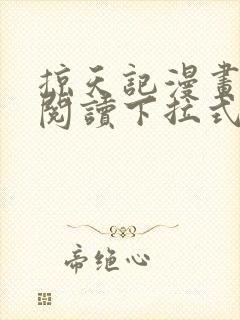 掠天記漫畫
閱讀下拉式
帝绝心